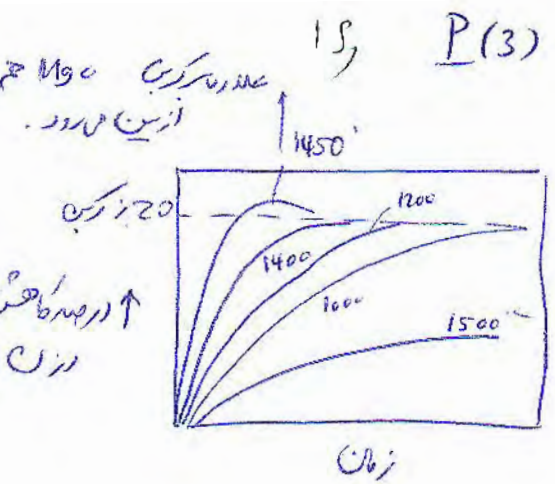 P(3)
علاوه بر کربن MgO هم
از بین می‌رود.
1450°
20٪ کربن
1200
1400
1000
1500°C
↑ درصد کاهش
وزن
زمان